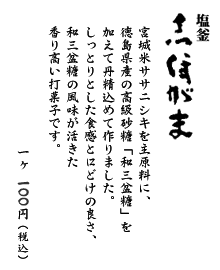 塩釜
志ほがま
宮城米ササニシキを主原料に、
徳島県産の高級砂糖「和三盆糖」を
加えて丹精込めて作りました。
しっとりとした食感とほどけの良さ、
和三盆糖の風味が活きた
香り高い打菓子です。
一ヶ 一〇〇円(税込)